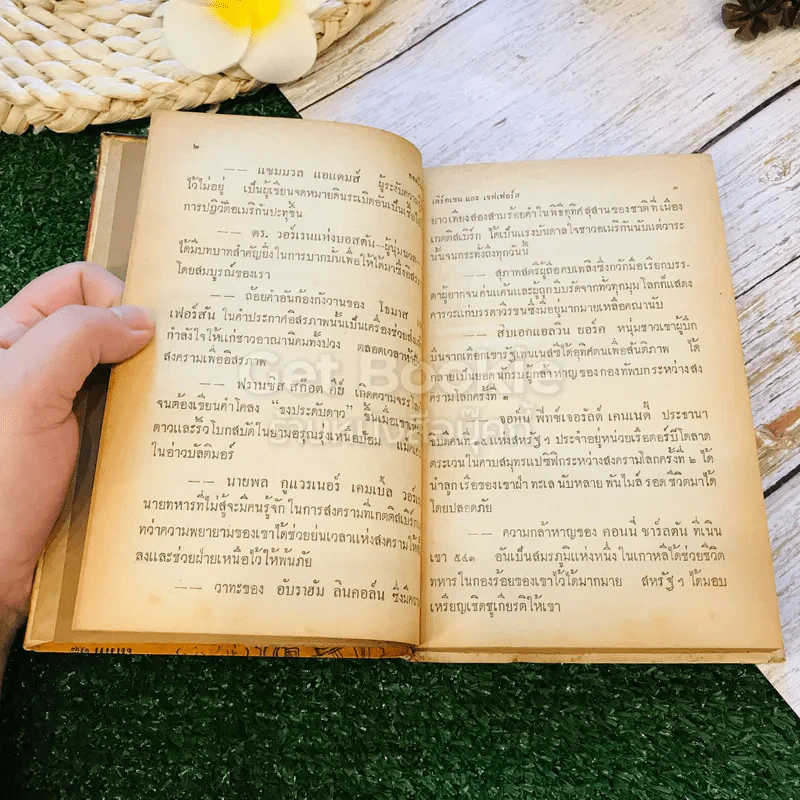 ๒
—— แซมมวล แอแดมส์ ผู้ระงับความ
ไว้ไม่อยู่ เป็นผู้เขียนจดหมายดินระเบิดอันเป็นเริ่ม
การปฏิวัติอเมริกันปะทุขึ้น
—— ดร. วอร์เรนแห่งบอสตัน—ผู้นุ่มนวล
ได้มีบทบาทสำคัญยิ่งในการบากบั่นเพื่อให้ได้มาซึ่งอิสร
โดยสมบูรณ์ของเรา
—— ถ้อยคำอันก้องกังวานของ โธมาส
เฟอร์สัน ในคำประกาศอิสรภาพนั้นเป็นเครื่องช่วย
กำลังใจให้แก่ชาวอาณานิคมทั้งปวง ตลอดเวลา
สงครามเพื่ออิสรภาพ
—— ฟรานซิส สก๊อต คีย์ เกิดความ
จนต้องเขียนคำโคลง “ธงประดับดาว” ขึ้นเมื่อเขา
ดาวและริ้วโบกสบัดในยามอรุณรุ่งเหนือป้อม
ในอ่าวบัลติมอร์
—— นายพล กูแวรเนอร์ เคมเบิ้ล วอร์
นายทหารที่ไม่สู้จะมีคนรู้จัก ในการสงครามที่เกตติสเบิร์ก
ทว่าความพยายามของเขาได้ช่วยย่นเวลาแห่งสงคราม
ลงและช่วยฝ่ายเหนือไว้ให้พ้นภัย
—— วาทะของ อับราฮัม ลินคอล์น ซึ่งมีความ
เดิร์คเซน และ เชฟเฟอร์ส ๓
ยาวเพียงสองสามร้อยคำในพิธีอุทิศสุสานของชาติที่เมือง
เกตติสเบิร์ก ได้เป็นแรงบันดาลใจชาวอเมริกันนับแต่วาระ
นั้นจนกระทั่งถึงทุกวันนี้
—— สุภาพสตรีผู้ถือคบเพลิงซึ่งกวักมือเรียกบรร-
ดาผู้ยากจนค่นแค้นและผู้ถูกบีบรัดจากทั่วทุกมุมโลกก็แสดง
คารวะแก่บรรดาวีรชนซึ่งมีอยู่มากมายเหลือคณานับ
—— สิบเอกแอลวิน ยอร์ค หนุ่มชาวเขาผู้บึก
บึนจากเทือกเขารัฐเทนเนสซีได้อุทิศตนเพื่อสันติภาพ ได้
กลายเป็นยอดนักรบผู้กล้าหาญของกองทัพบกระหว่างสง
ครามโลกครั้งที่ ๑
—— จอห์น ฟิทซ์เจอรัลด์ เคนเนดี้ ประธานา
ธิบดีคนที่ ๓๕ แห่งสหรัฐฯ ประจำอยู่หน่วยเรือตอร์ปิโดลาด
ตระเวนในคาบสมุทรแปซิฟิกระหว่างสงครามโลกครั้งที่ ๒ ได้
นำลูกเรือของเขาฝ่าทะเลนับหลายพันไมล์รอดชีวิตมาได้
โดยปลอดภัย
—— ความกล้าหาญของ คอนนี่ ชาร์ลตัน ที่เนิน
เขา ๕๔๓ อันเป็นสมรภูมิแห่งหนึ่งในเกาหลีได้ช่วยชีวิต
ทหารในกองร้อยของเขาไว้ได้มากมาย สหรัฐฯ ได้มอบ
เหรียญเชิดชูเกียรติให้เขา
Get Bookie
ร้านหนังสือเก็ทบุ๊คกี้